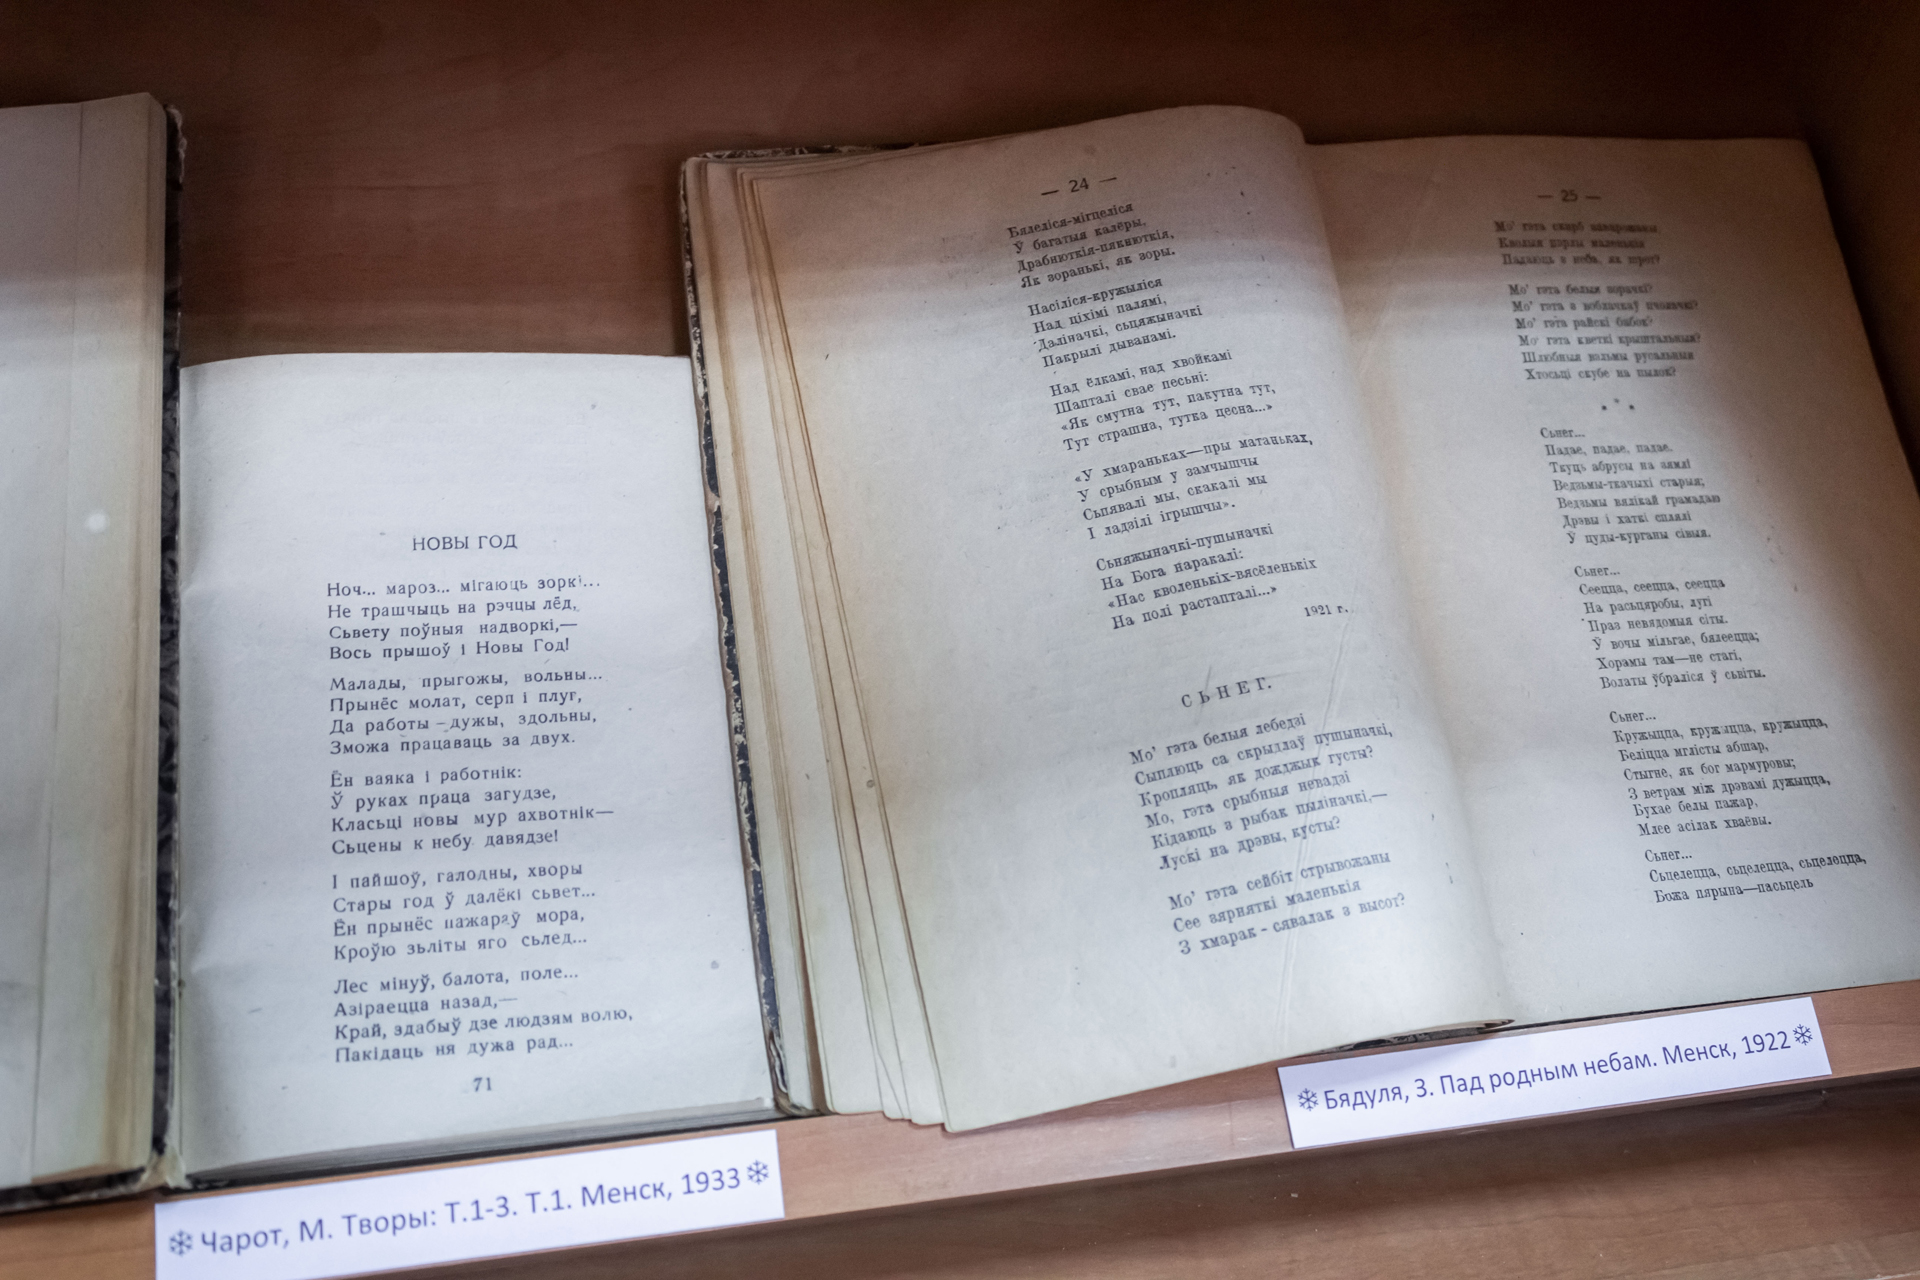 НОВЫ ГОД
Ноч... мароз... мігаюць зоркі...
Не трашчыць на рэчцы лёд,
Сьвету поўныя надворкі,—
Вось прышоў і Новы Год!
Малады, прыгожы, вольны...
Прынёс молат, серп і плуг,
Да работы – дужы, здольны,
Зможа працаваць за двух.
Ён ваяка і работнік:
Ў руках праца загудзе,
Класьці новы мур ахвотнік—
Сьцены к небу давядзе!
І пайшоў, галодны, хворы
Стары год ў далёкі сьвет...
Ён прынёс пажараў мора,
Кроўю зьліты яго сьлед...
Лес мінуў, балота, поле...
Азіраецца назад,—
Край, здабыў дзе людзям волю,
Пакідаць ня дужа рад...
71
— 24 —
Бялеліся-мігцеліся
Ў багатыя калёры,
Драбнюткія-пякнюткія,
Як зоранькі, як зоры.
Насіліся-кружыліся
Над ціхімі палямі,
Даліначкі, сьцяжыначкі
Пакрылі дыванамі.
Над ёлкамі, над хвойкамі
Шапталі свае песьні:
«Як смутна тут, пакутна тут,
Тут страшна, тутка цесна...»
«У хмараньках—пры матаньках,
У срыбным у замчышчы
Сьпявалі мы, скакалі мы
І ладзілі ігрышчы».
Сьняжыначкі-пушыначкі
На Бога наракалі:
«Нас кволенькіх-вясёленькіх
На полі растапталі...»
1921 г.
СЬНЕГ.
Мо' гэта белыя лебедзі
Сыплюць са скрыдлаў пушыначкі,
Кропляць, як дожджык густы?
Мо, гэта срыбныя невадзі
Кідаюць з рыбак пыліначкі,—
Лускі на дрэвы, кусты?
Мо' гэта сейбіт стрывожаны
Сее зярняткі маленькія
З хмарак - сявалак з высот?
— 25 —
Мо' гэта скарб заварожаны
Кволыя пэрлы маленькія
Падаюць з неба, як
Мо' гэта белыя зорачкі?
Мо' гэта з воблачкаў пчолачкі?
Мо' гэта райскі бабок?
Мо' гэта кветкі крыштальныя?
Шлюбныя вэльмы русальныя
Хтосьці скубе на пылок?
* * *
Сьнег...
Падае, падае, падае.
Ткуць абрусы на зямлі
Ведзьмы-ткачыхі старыя;
Ведзьмы вялікай грамадаю
Дрэвы і хаткі сплялі
Ў цуды-курганы сівыя.
Сьнег...
Сеецца, сеецца, сеецца
На расьцяробы, лугі
Праз невядомыя сіты.
Ў вочы мільгае, бялеецца;
Хорамы там—не стагі,
Волаты ўбраліся ў сьвіты.
Сьнег...
Кружыцца, кружыцца, кружыцца,
Беліцца мглісты абшар,
Стыгне, як бог мармуровы;
З ветрам між дрэвамі дужыцца,
Бухае белы пажар,
Млее асілак хваёвы.
Сьнег...
Сьцелецца, сьцелецца, сьцелецца,
Божа пярына—пасьцель
Чарот, М. Творы: Т.1-3. Т.1. Менск, 1933
Бядуля, З. Пад родным небам. Менск, 1922